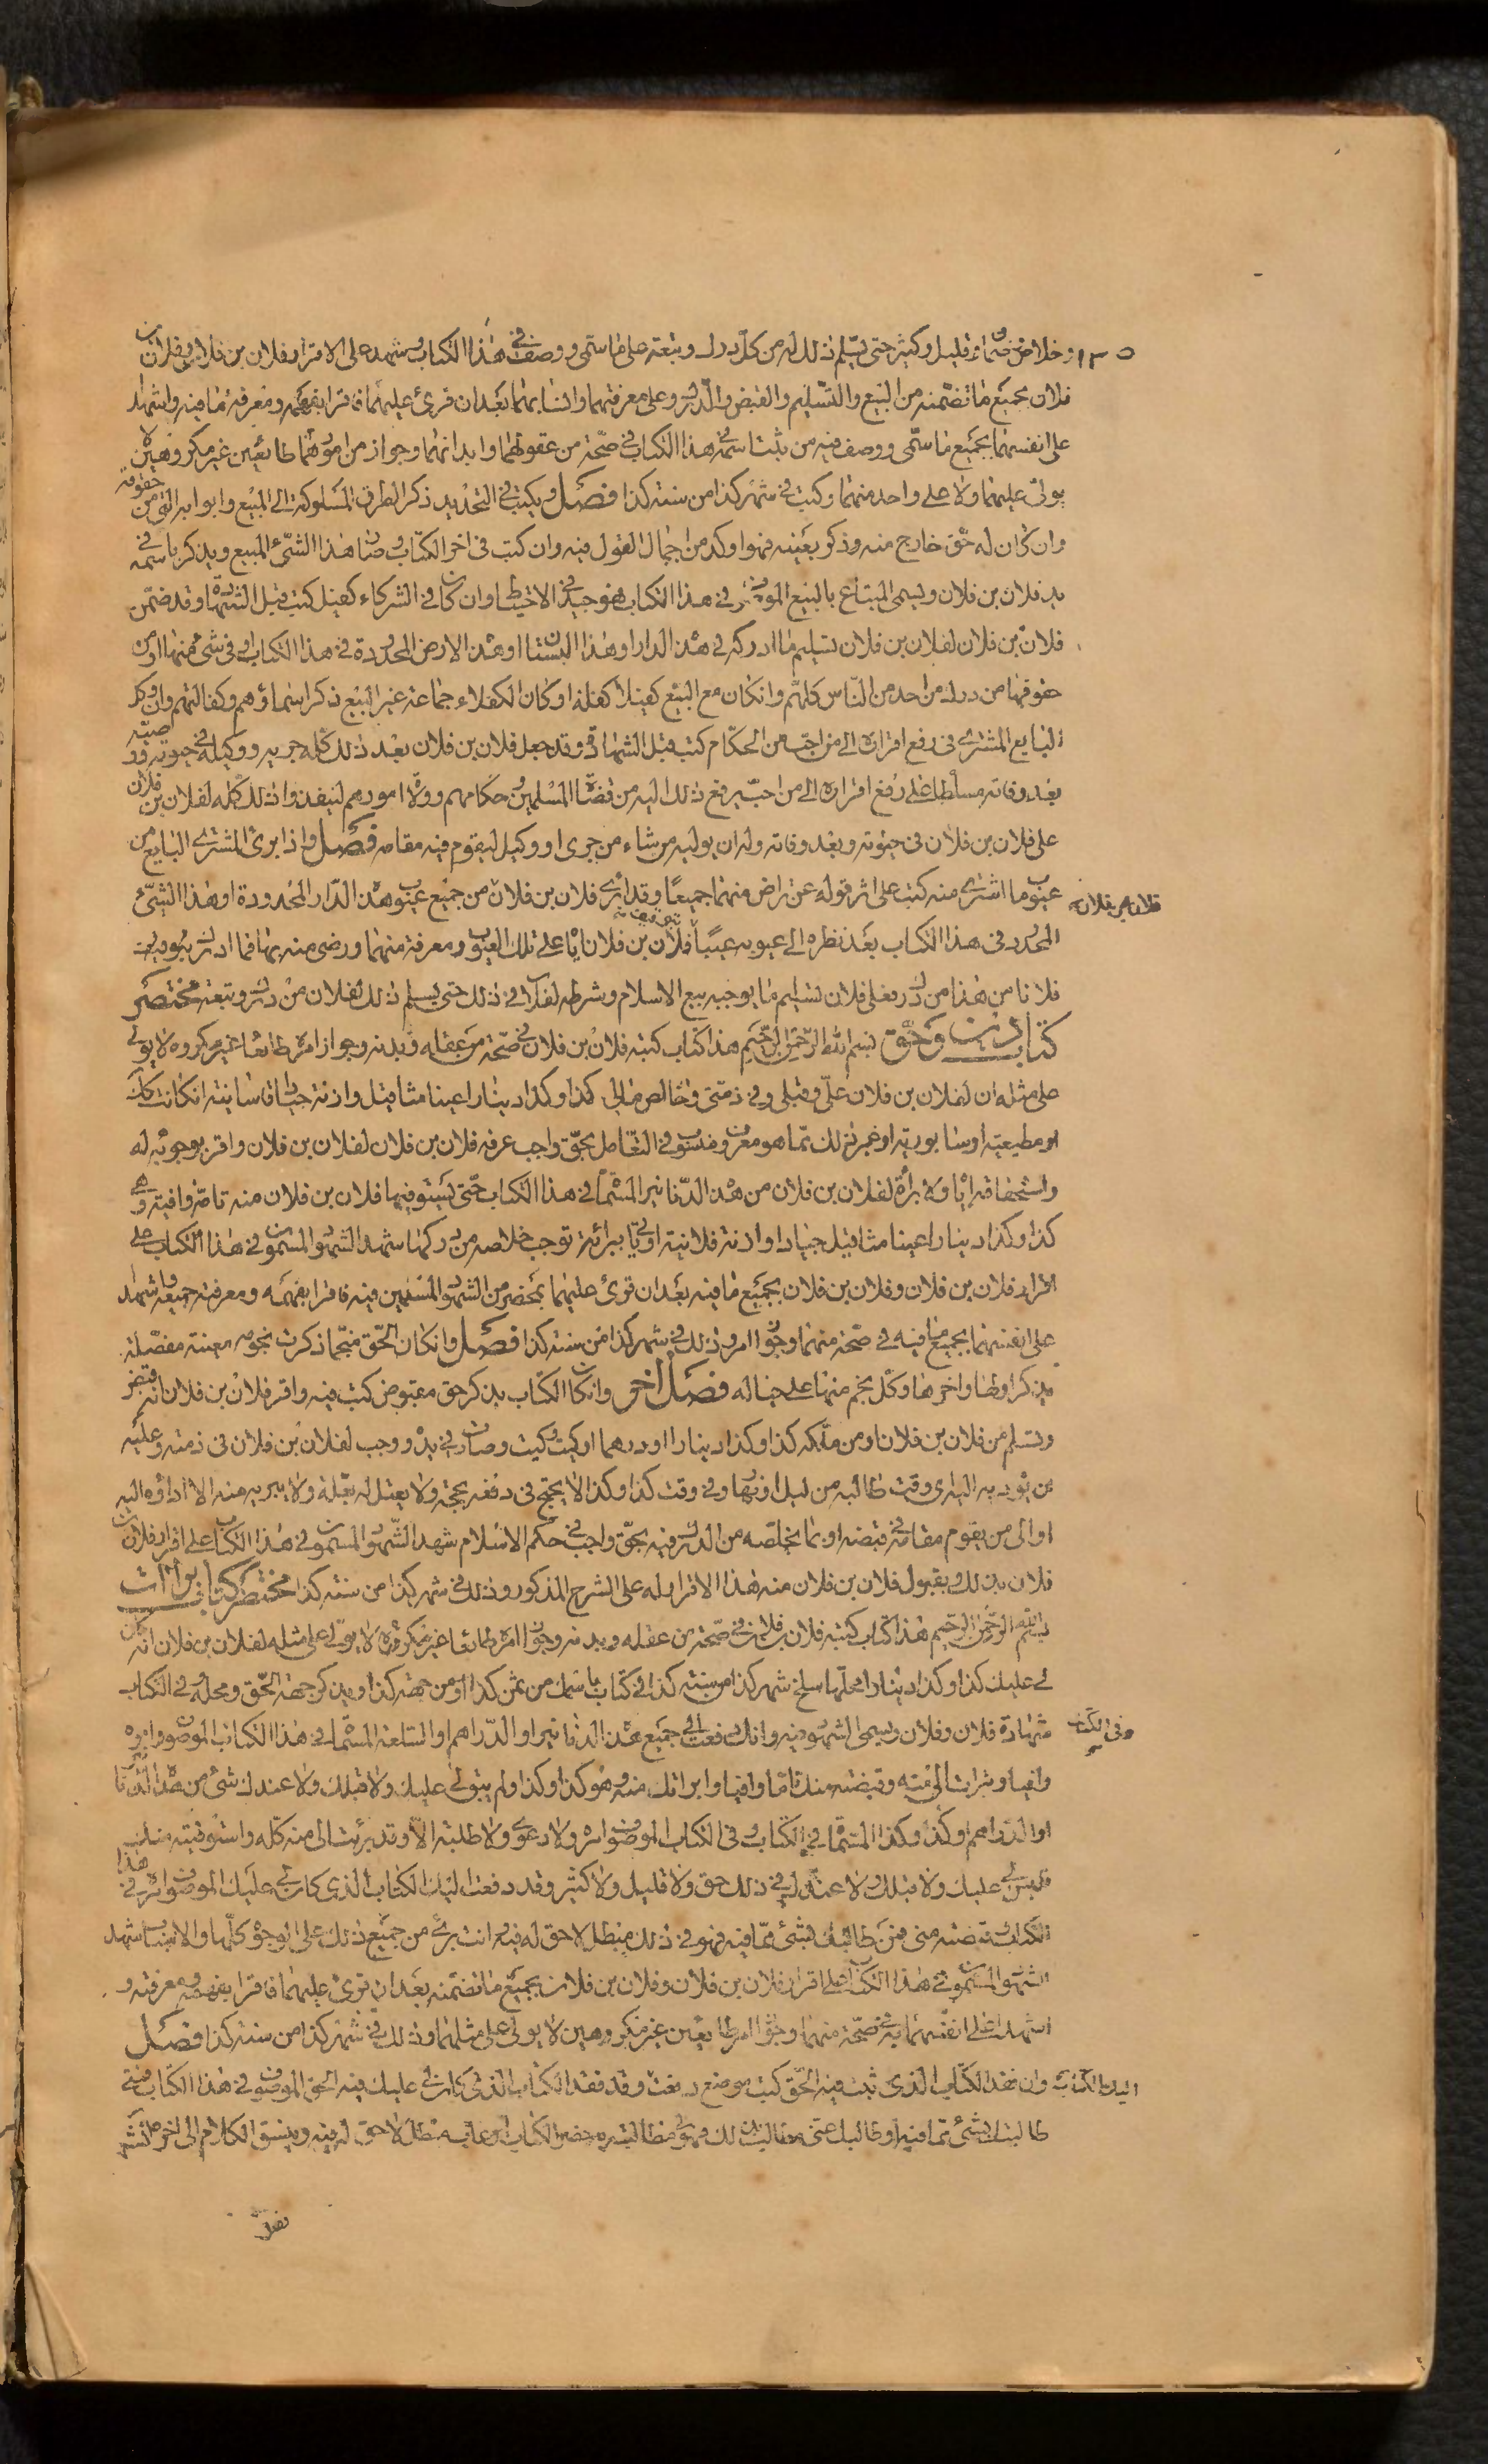 ١٣٥ وخلاص وضمان قليل وكثير حتى يسلم ذلك له من كل درك وتبعة على ما سمى ووصف في هذا الكتاب وشهد على الاقرار فلان بن فلان وفلان بن
فلان بجميع ما تضمنه من البيع والتسليم والقبض والدرك وعلى معرفتهما وانسابهما بعد ان قرئ عليهما فاقرا بفهمه ومعرفة ما فيه واشهدا
على انفسهما بجميع ما سمى ووصف فيه من ثبت اسمه في هذا الكتاب في صحة من عقولهما وابدانهما وجواز من امورهما طائعين غير مكروهين لا
يولى عليهما ولا على واحد منهما وكتب في شهر كذا من سنة كذا فصل ويكتب في التحديد ذكر الطرق المسلوكة الى المبيع وابوابه التي من حقوقه
وان كان له حق خارج منه وذكر بعينه فهو اوكد من اجمال القول فيه وان كتب في اخر الكتاب وصار هذا الشئ المبيع ويذكر باسمه في
يد فلان بن فلان ويسمى المبتاع بالبيع الموصوف في هذا الكتاب فهو جيد في الاحتياط وان كان في الشركاء كفيل كتب قبل الشهادة وقد ضمن
فلان بن فلان لفلان بن فلان تسليم ما ادركه في هذه الدار او هذا البستان او هذه الارض المحدودة في هذا الكتاب او في شئ منها او من
حقوقها من درك من احد من الناس كلهم وان كان مع البيع كفيلا كفله او كان الكفلاء جماعة غير البيع ذكر اسماؤهم وكفالتهم وان وكل
البايع المشترى في رفع اقراره الى من احب من الحكام كتب قبل الشهادة وقد جعل فلان بن فلان بعد ذلك كله جريه ووكيله في حيوته ووصيه
بعد وفاته مسلطا على رفع اقراره الى من احب يرفع ذلك اليه من قضاة المسلمين وحكامهم وولاة امورهم لينفذوا ذلك كله لفلان بن فلان
على فلان بن فلان في حيوته وبعد وفاته وله ان يوليه من شاء من جرى او وكيل ليقوم فيه مقامه فصل واذا برئ المشترى البايع من
عيوب ما اشترى منه كتب على اثر قوله عن تراض منهما جميعا وقد ابرئ فلان بن فلان من جميع عيوب هذه الدار المحدودة او هذا الشئ
فلان بن فلان
المحدود في هذا الكتاب بعد نظره الى عيوبه عيبا عيبا وتوقيف فلان بن فلان اياه على تلك العيوب ومعرفة منهما ورضى منه بها فما ادرك
فلانا من هذا من درك فعلى فلان تسليم ما يوجبه بيع الاسلام وشرطه لفلان في ذلك حتى يسلم ذلك لفلان من درك وتبعة مختصر
كتاب دين وحق بسم الله الرحمن الرحيم هذا كتاب كتبه فلان بن فلان في صحة من عقله وبدنه وجواز امره طائعا غير مكروه لا يولى
على مثله ان لفلان بن فلان على وقبلي وفي ذمتي وخالص مالي كذا وكذا دينارا عينا مثاقيل وازنة جيادا ان كانت كذلك
او مطيعية او سابورية او غير ذلك مما هو معروف ومنسوب في التعامل بحق واجب عرفه فلان بن فلان لفلان بن فلان واقر بوجوبه له
واستحقاقه اياه ولا براءة لفلان بن فلان من هذه الدنانير المسماة في هذا الكتاب حتى يستوفيها فلان بن فلان منه تامة وافية وهي
كذا وكذا دينارا عينا مثاقيل جيادا وازنة فلانية او ياتي ببرائة توجب خلاصه من دركها شهد الشهود المسمون في هذا الكتاب على
اقرار فلان بن فلان وفلان بن فلان بجميع ما فيه بعد ان قرئ عليهما بمحضر من الشهود المسمين فيه فاقرا بفهمه ومعرفة جميعه واشهدا
على انفسهما بجميع ما فيه في صحة منهما وجواز امر وذلك في شهر كذا من سنة كذا فصل وان كان الحق منجما ذكرت نجومه معينة مفصلة
يذكر اولها واخرها وكل نجم منها على حياله فصل اخر وان كان الكتاب بذكر حق مقبوض كتب فيه واقر فلان بن فلان انه قبض
وتسلم من فلان بن فلان ومن ملكه كذا وكذا دينارا او درهما او كيت وكيت وصارت في يده ووجب لفلان بن فلان في ذمته وعليه
من يوديه اليه اى وقت طالبه من ليل او نهار وفي وقت كذا وكذا لا يحتج في دفعه بحجة ولا يعتل له بعلة ولا يبريه منه الا اداؤه اليه
او الى من يقوم مقامه في قبضه او بما يخلصه من الدرك فيه بحق واجب في حكم الاسلام شهد الشهود المسمون في هذا الكتاب على اقرار فلان بن
فلان بذلك وبقبول فلان بن فلان منه هذا الاقرار له على الشرح المذكور وذلك في شهر كذا من سنة كذا مختصر كتاب براءت
بسم الله الرحمن الرحيم هذا كتاب كتبه فلان بن فلان في صحة من عقله وبدنه وجواز امره طائعا غير مكروه لا يولى على مثله لفلان بن فلان انه كان
لي عليك كذا وكذا دينارا محلها سلخ شهر كذا من سنة كذا في كتاب باسمك من ثمن كذا او من جهة كذا ويذكر جهة الحق ومحله في الكتاب
شهادة فلان وفلان ويسمى الشهود فيه وانك دفعت الى جميع هذه الدنانير او الدراهم او السلعة المسماة في هذا الكتاب الموصوف
وفي الكتاب
وافيا وبرات الى منه وقبضته منك تاما وافيا وابراتك منه وهو كذا وكذا ولم يبق لي عليك ولا قبلك ولا عندك شئ من هذه الدنانير
او الدراهم او كذا وكذا المسماة في الكتاب وفي الكتاب الموصوف ولا دعوى ولا طلبة الا وقد برئت الى منه كله واستوفيته منك
فليس لي عليك ولا قبلك ولا عندك في ذلك حق ولا قليل ولا كثير وقد دفعت اليك الكتاب الذي كان لي عليك الموصوف في هذا
الكتاب قبضته منى فمن طالبك بشئ مما فيه فهو في ذلك مبطل لا حق له فيه وانت برئ من جميع ذلك على الوجوه كلها والاسباب شهد
الشهود المسمون في هذا الكتاب على اقرار فلان بن فلان وفلان بن فلان بجميع ما تضمنه بعد ان قرئ عليهما فاقرا بفهمه ومعرفته و
اشهدا على انفسهما به في صحة منهما وجواز امر طائعين غير مكروهين لا يولى على مثلهما وذلك في شهر كذا من سنة كذا فصل
وان فقد الكتاب الذي ثبت فيه الحق كتب موضع دفعت وقد فقد الكتاب الذي كان لي عليك فيه الحق الموصوف في هذا الكتاب فمتى
اليك الكتاب
طالبتك بشئ مما فيه او طالبك عنى مطالب بذلك فهو في مطالبته حضر الكتاب او غاب مبطل لا حق له فيه وينسق الكلام الى اخره